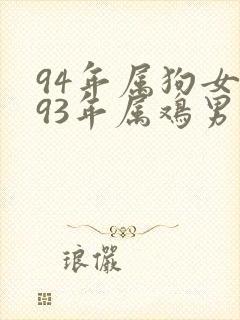 94年属狗女
93年属鸡男
琅俨